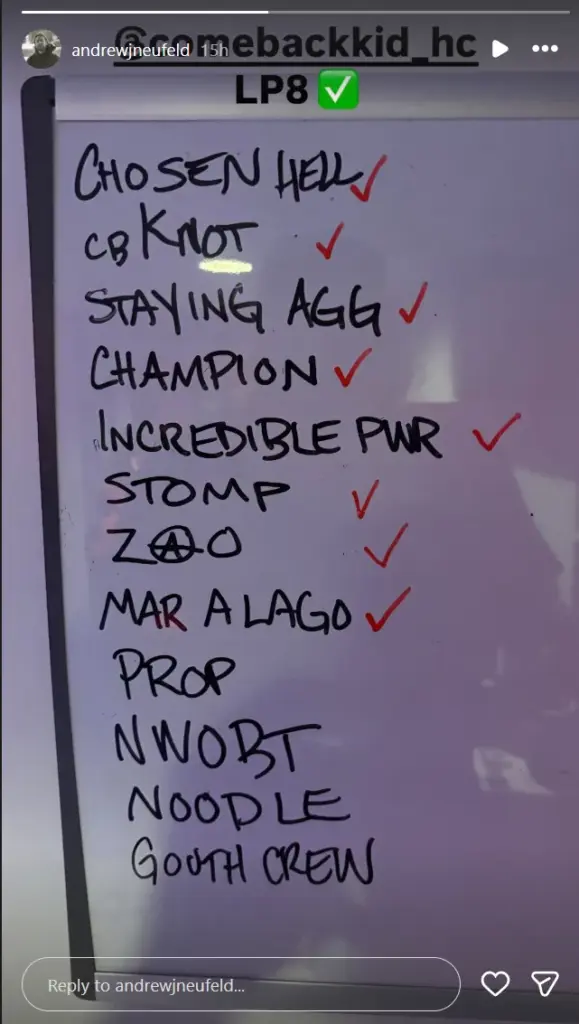 @comebackkid_hc
andrewjneufeld 15h
LP8 ✅
CHOSEN HELL ✓
CB KNOT ✓
STAYING AGG ✓
CHAMPION ✓
INCREDIBLE PWR ✓
STOMP ✓
ZⒶO ✓
MAR A LAGO ✓
PROP
NWOBT
NOODLE
GOUTH CREW
Reply to andrewjneufeld...